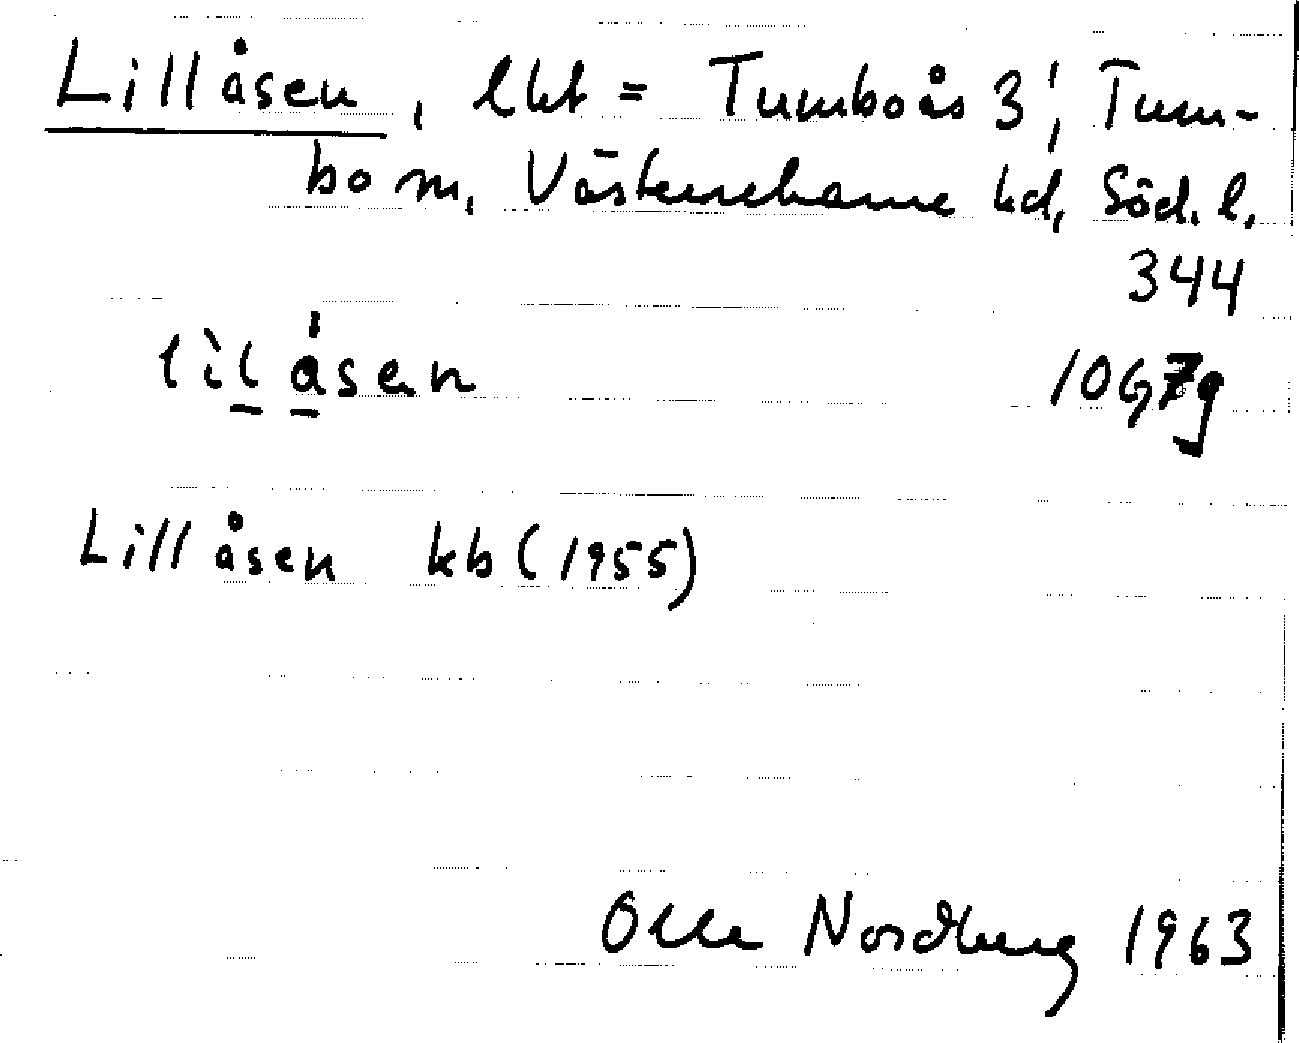 Lillåsen, lht = Tumboås 3¹, Tum-
bo sn, Västerrekarne hd, Söd. l.
344
lìlåsen 10G7g
Lillåsen kb (1955)
Olle Nordberg 1963